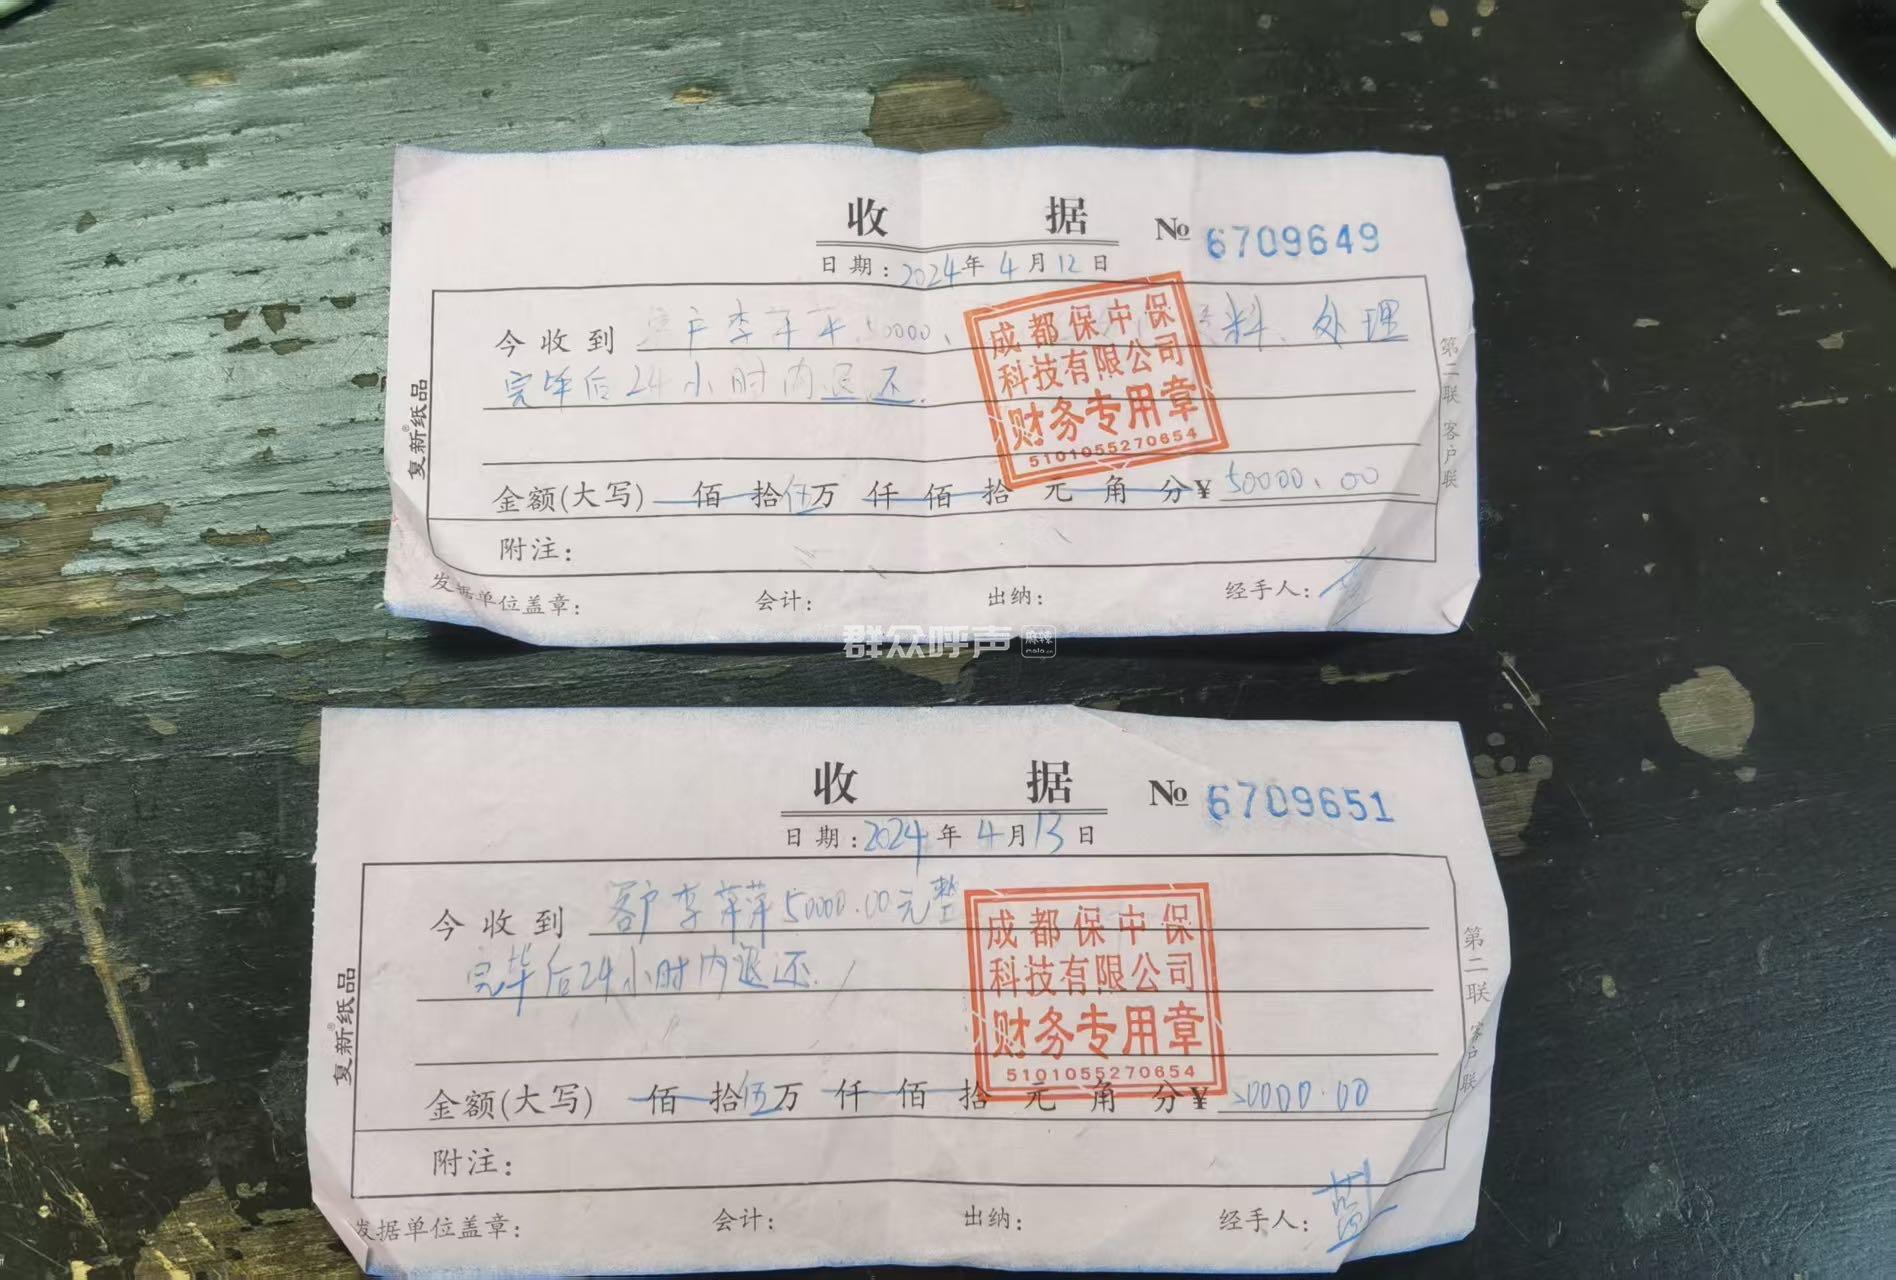 收 据
№ 6709649
日期: 2024年 4月 12日
今收到 客户李苹苹 50000、 料、处理
完毕后24小时内退还.
成都保中保
科技有限公司
财务专用章
5101055270654
金额(大写) 佰 拾 伍万 仟 佰 拾 元 角 分 ¥ 50000.00
附注:
发据单位盖章: 会计: 出纳: 经手人:
复新®纸品
第二联 客户联
群众呼声 麻辣 mala.cn
收 据
№ 6709651
日期: 2024年 4月 13日
今收到 客户李苹苹 50000.00元整
完毕后24小时内退还.
成都保中保
科技有限公司
财务专用章
5101055270654
金额(大写) 佰 拾 伍万 仟 佰 拾 元 角 分 ¥ 50000.00
附注:
发据单位盖章: 会计: 出纳: 经手人:
复新®纸品
第二联 客户联